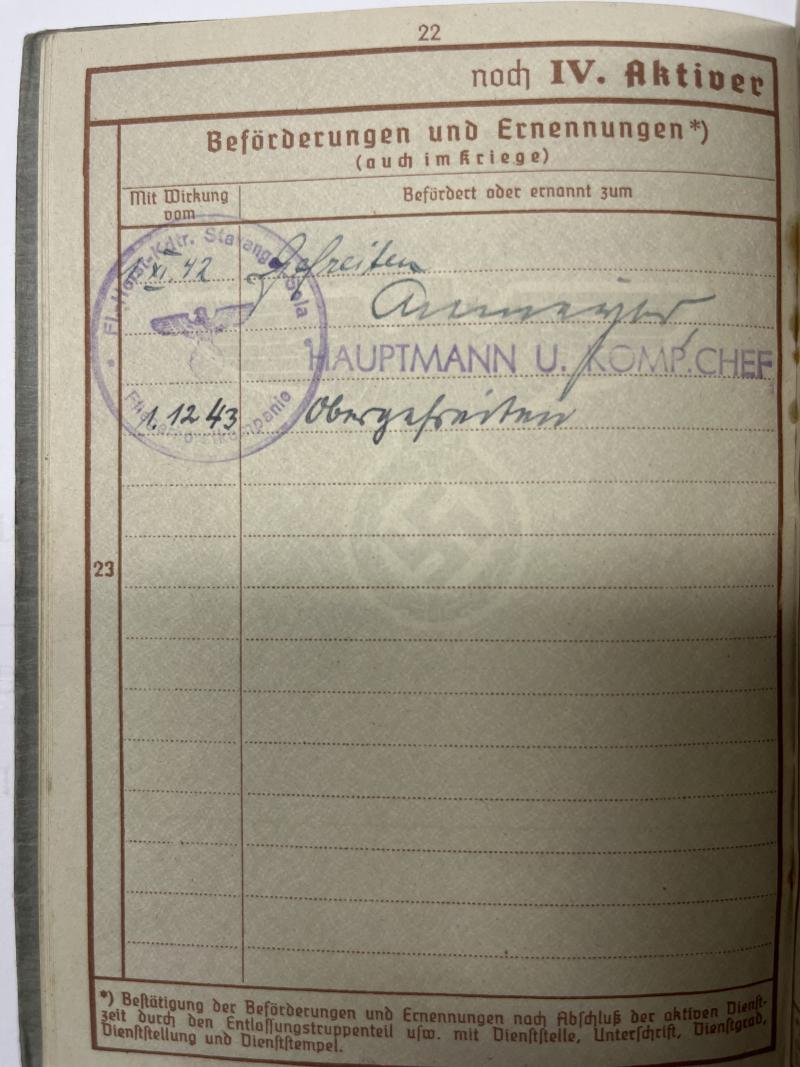 22
noch IV. Aktiver
Beförderungen und Ernennungen*)
(auch im Kriege)
Mit Wirkung
vom
Befördert oder ernannt zum
Fl. Horst-Kdtr. Stavanger-Sola
1. XI. 42 Gefreiten
HAUPTMANN U. KOMP. CHEF
1. 12 43 Obergefreiten
23
*) Bestätigung der Beförderungen und Ernennungen nach Abschluß der aktiven Dienst-
zeit durch den Entlassungstruppenteil usw. mit Dienststelle, Unterschrift, Dienstgrad,
Dienststellung und Dienststempel.